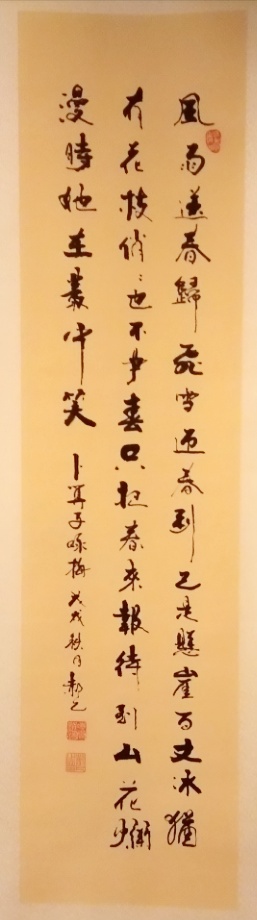 風雨送春歸飛雪迎春到已是懸崖百丈冰猶
有花枝俏俏也不爭春只把春來報待到山花爛
漫時她在叢中笑
卜算子咏梅 戊戌秋月